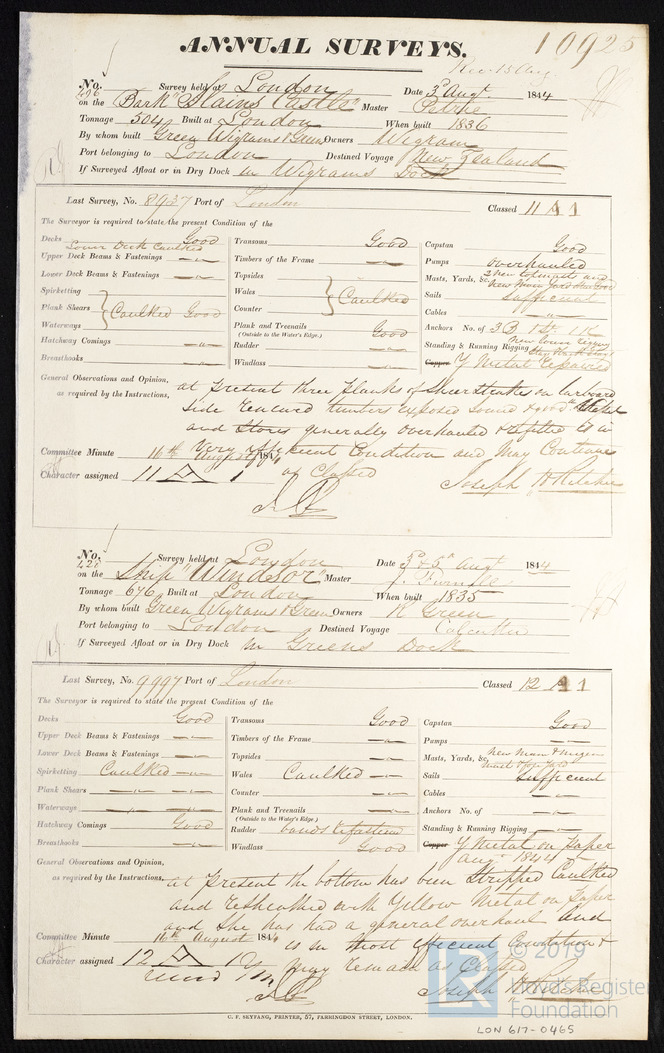 ANNUAL SURVEYS.
10925
Rec 15 Aug
No. 420 Survey held at London Date 3d Augt 1844
on the Bark "Blains Castle" Master Petrie
Tonnage 504 Built at London When built 1836
By whom built Green Wigrams & Green Owners Wigram
Port belonging to London Destined Voyage New Zealand
If Surveyed Afloat or in Dry Dock in Wigrams Dock
Last Survey, No. 8937 Port of London Classed 11 A 1
The Surveyor is required to state the present Condition of the
Decks Good
Lower Deck Caulked
Upper Deck Beams & Fastenings
Lower Deck Beams & Fastenings
Spirketting
Plank Shears Caulked Good
Waterways
Hatchway Comings
Breasthooks
Transoms Good
Timbers of the Frame
Topsides
Wales Caulked
Counter
Plank and Treenails Good
(Outside to the Water's Edge.)
Rudder
Windlass
Capstan Good
Pumps overhauled
Masts, Yards, &c. 2 New topmasts and New Main Yard
Sails Sufficient
Cables
Anchors No. of 3 B 1 St 1 K
Standing & Running Rigging New lower Rigging
Copper Y Metal Repaired
General Observations and Opinion,
as required by the Instructions,
at Present three planks of Sheerstrakes on larboard
side renewed timbers exposed sound & good
and Stores generally overhauled & refitted is in
Very efficient Condition and May Continue
as Classed
Committee Minute 16th August 1844
Character assigned 11 A 1
Joseph H Ritchie
No. 421 Survey held at London Date 3d & 5th Augt 1844
on the Ship "Windsor" Master
Tonnage 676 Built at London When built 1835
By whom built Green Wigrams & Green Owners R Green
Port belonging to London Destined Voyage Calcutta
If Surveyed Afloat or in Dry Dock in Greens Dock
Last Survey, No. 9997 Port of London Classed 12 A 1
The Surveyor is required to state the present Condition of the
Decks Good
Upper Deck Beams & Fastenings
Lower Deck Beams & Fastenings
Spirketting Caulked
Plank Shears
Waterways
Hatchway Comings Good
Breasthooks
Transoms Good
Timbers of the Frame
Topsides
Wales Caulked
Counter
Plank and Treenails
(Outside to the Water's Edge.)
Rudder bands refastened
Windlass Good
Capstan Good
Pumps
Masts, Yards, &c. New Main & Mizen
Sails Sufficient
Cables
Anchors No. of
Standing & Running Rigging
Copper Y Metal on Paper
Augt 1844
General Observations and Opinion,
as required by the Instructions,
at Present the bottom has been Stripped Caulked
and resheathed with Yellow Metal on Paper
and She has had a general overhaul and
is in most efficient Condition &
may remain as Classed
Committee Minute 16th August 1844
Character assigned 12 A 1
Joseph H Ritchie
C. F. SKYFANG, PRINTER, 57, FARRINGDON STREET, LONDON.
© 2019
LR
Lloyd's Register
Foundation
LON 617-0465